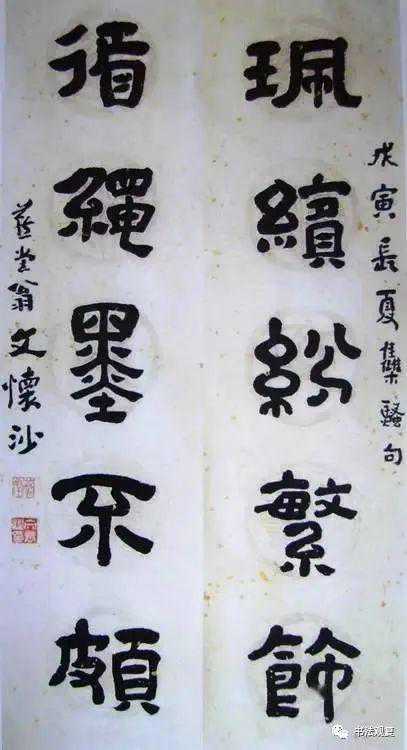 珮繽紛繁飾
戊寅長夏集騷句
循繩墨不頗
燕堂翁文懷沙
书法观